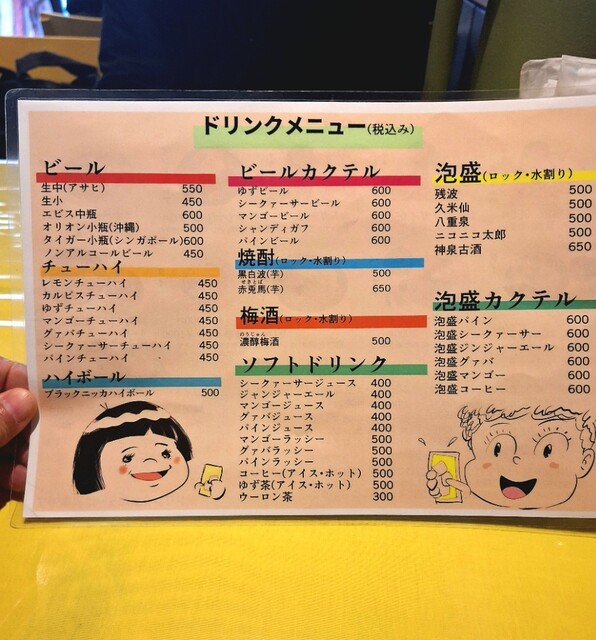 ドリンクメニュー(税込み)
ビール
生中(アサヒ) 550
生小 450
エビス中瓶 600
オリオン小瓶(沖縄) 500
タイガー小瓶(シンガポール)600
ノンアルコールビール 450
チューハイ
レモンチューハイ 450
カルピスチューハイ 450
ゆずチューハイ 450
マンゴーチューハイ 450
グァバチューハイ 450
シークァーサーチューハイ 450
パインチューハイ 450
ハイボール
ブラックニッカハイボール 500
ビールカクテル
ゆずビール 600
シークァーサービール 600
マンゴービール 600
シャンディガフ 600
パインビール 600
焼酎(ロック・水割り)
黒白波(芋) 500
せきとば
赤兎馬(芋) 650
梅酒(ロック・水割り)
のうじゅん
濃醇梅酒 500
ソフトドリンク
シークァーサージュース 400
ジャンジャーエール 400
マンゴージュース 400
グァバジュース 400
パインジュース 400
マンゴーラッシー 500
グァバラッシー 500
パインラッシー 500
コーヒー(アイス・ホット) 500
ゆず茶(アイス・ホット) 500
ウーロン茶 300
泡盛(ロック・水割り)
残波 500
久米仙 500
八重泉 500
ニコニコ太郎 500
神泉古酒 650
泡盛カクテル
泡盛パイン 600
泡盛シークァーサー 600
泡盛ジンジャーエール 600
泡盛グァバ 600
泡盛マンゴー 600
泡盛コーヒー 600